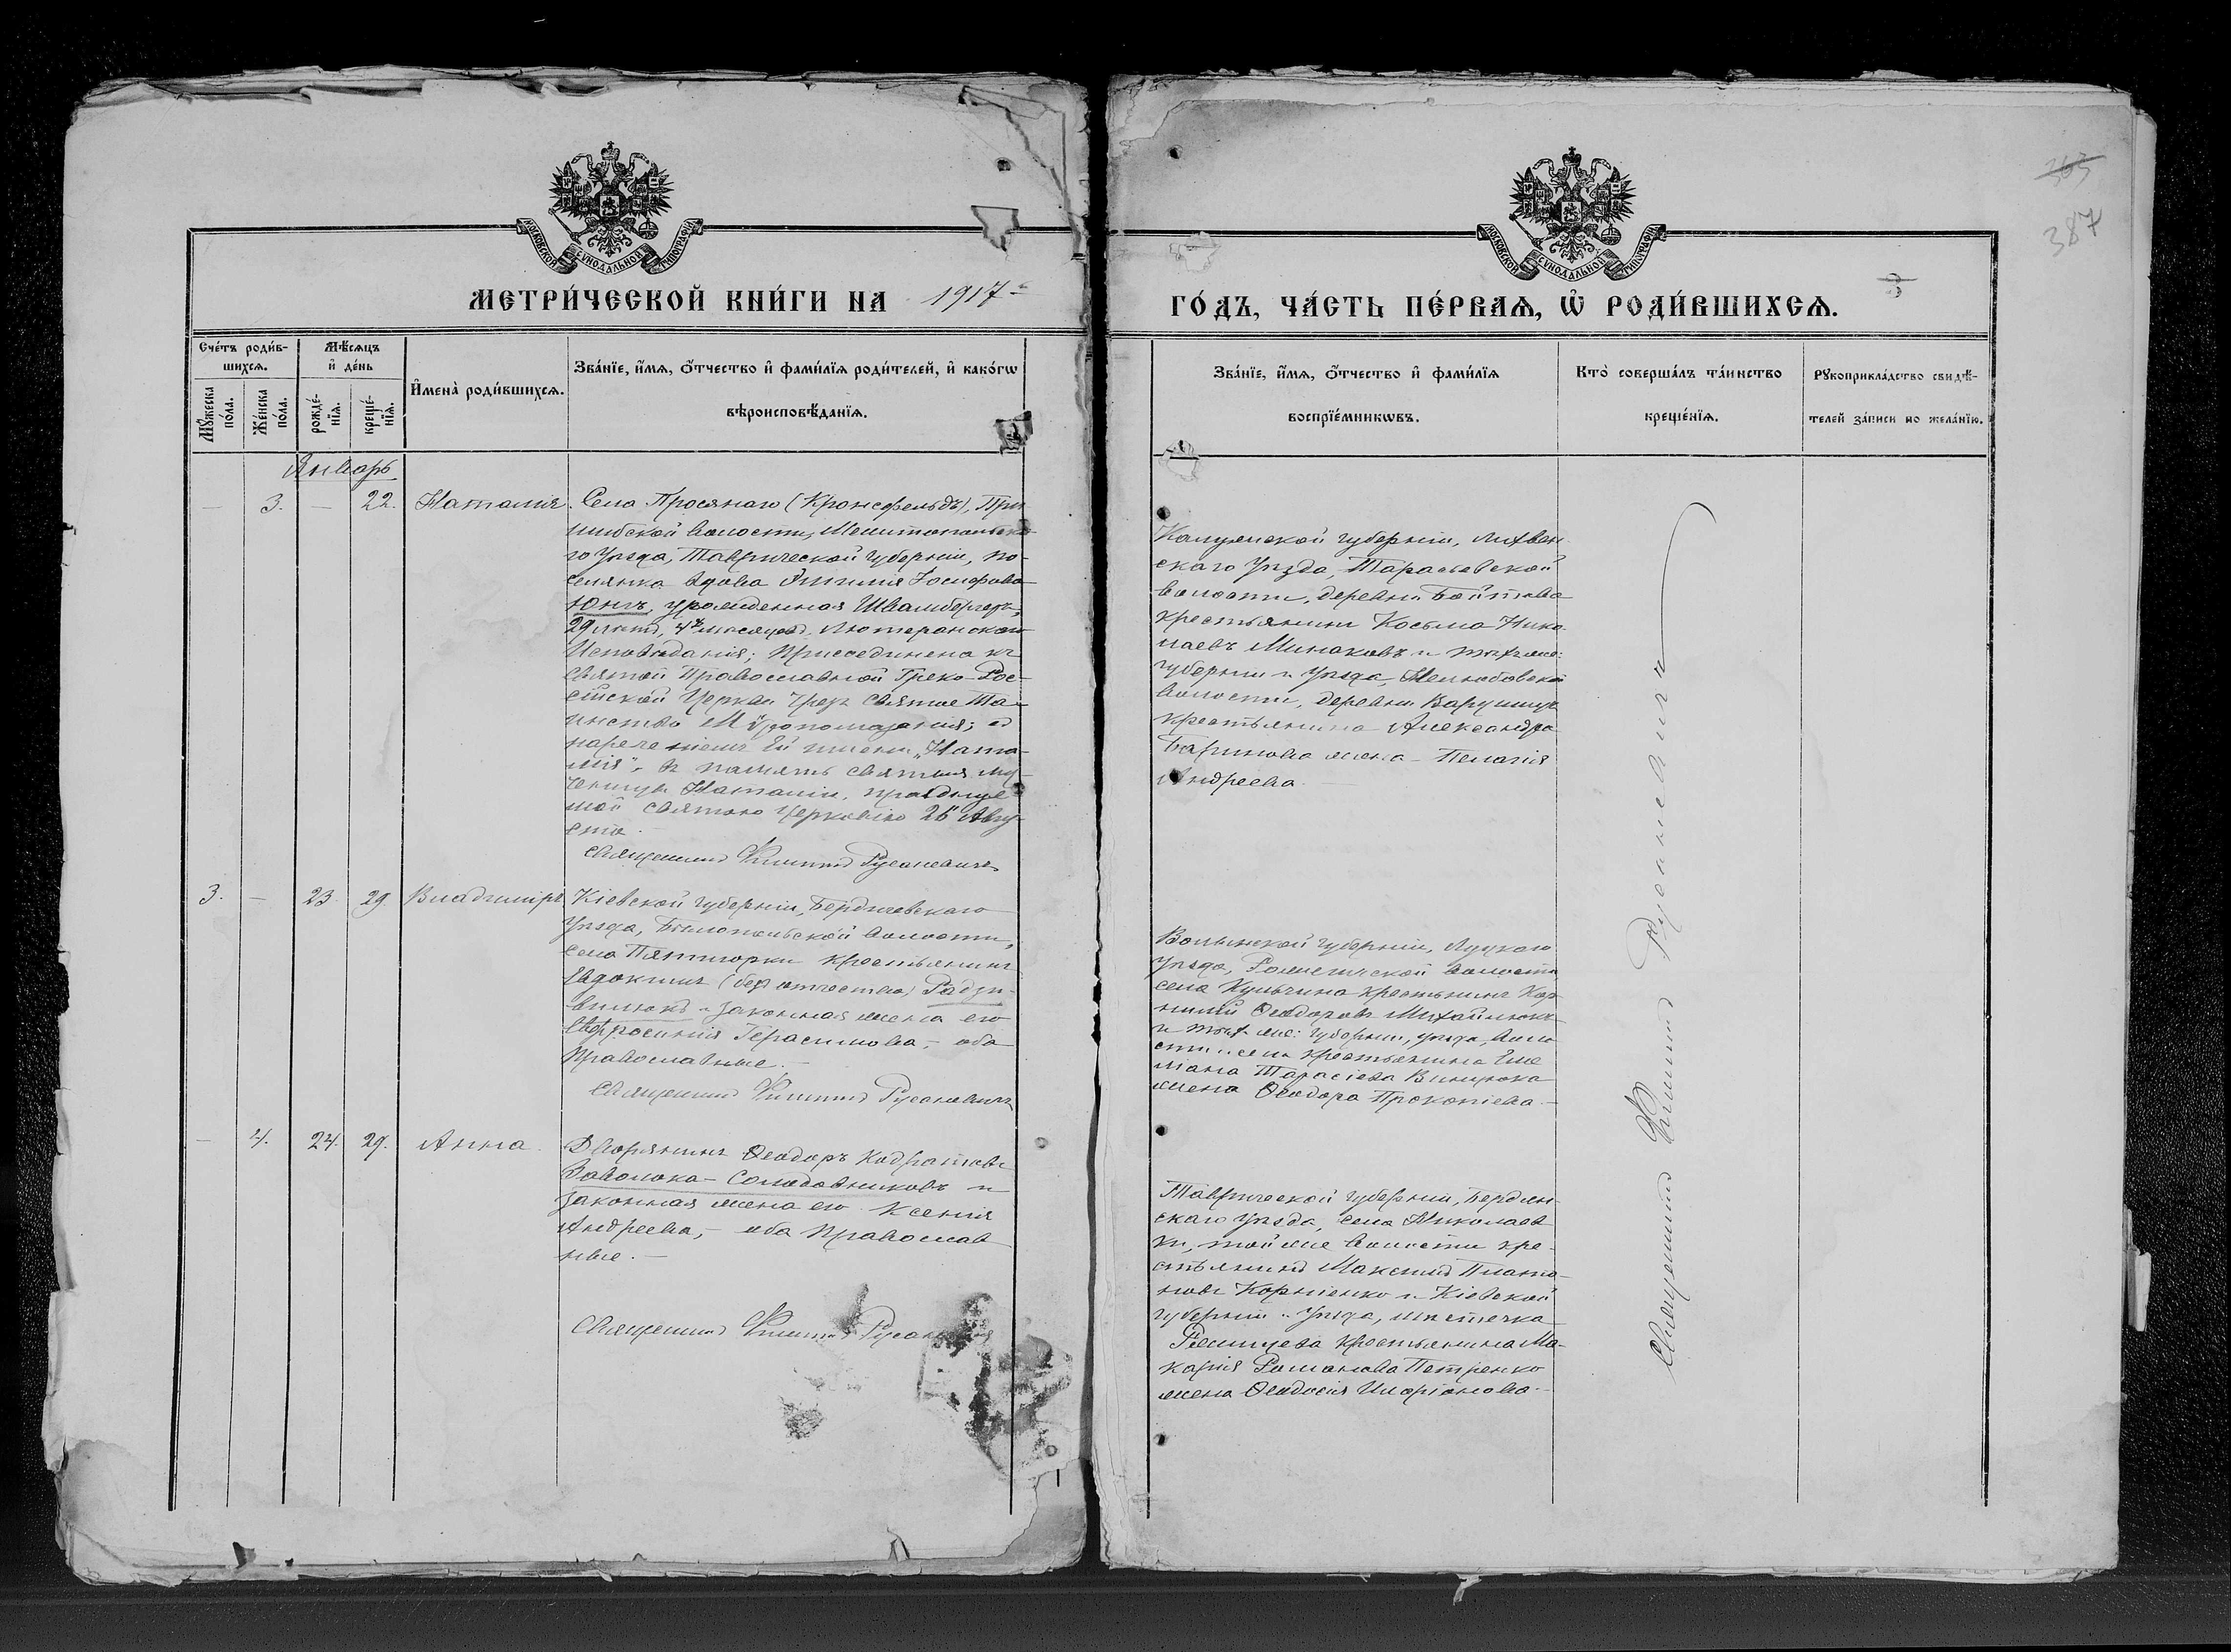 363
387
3
МОСКОВСКОЙ СѴНОДАЛЬНОЙ ТИПОГРАФІИ
МОСКОВСКОЙ СѴНОДАЛЬНОЙ ТИПОГРАФІИ
МЕТРИ́ЧЕСКОЙ КНИ́ГИ НА 1917
ГО́ДЪ, ЧА́СТЬ ПЕ́РВАѦ, Ѡ҆ РОДИ́ВШИХСѦ.
Сче́тъ роди́в-
шихсѧ.
Мꙋ́жеска
по́ла.
Же́нска
по́ла.
Мѣ́сѧцъ
и҆ де́нь
рожде́-
нїѧ.
креще́-
нїѧ.
И҆мена̀ роди́вшихсѧ.
Зва́нїе, и҆́мѧ, ѻ҆́тчество и҆ фами́лїѧ роди́телей, и҆ како́гѡ
вѣроисповѣ́данїѧ.
Зва́нїе, и҆́мѧ, ѻ҆́тчество и҆ фами́лїѧ
воспрїе́мникѡвъ.
Кто̀ соверша́лъ та́инство
креще́нїѧ.
Рꙋкоприкла́дство свидѣ́-
телей за́писи по жела́нїю.
Январь
— 3. — 22. Наталія.
Села Просянаго (Кронсфельдъ), При-
шибской волости, Мелитопольска-
го уѣзда, Таврической губерніи, по-
селянка вдова Эмилія Іосифова
Юнгъ, урожденная Швамбергеръ,
29 лѣтъ, 4 мѣсяцевъ, Лютеранскаго
Исповѣданія; присоединена къ
Святой Православной Греко-Рос-
сійской Церкви чрезъ Святое Та-
инство Мѵропомазанія; съ
нареченіемъ Ей имени „Ната-
лія", въ память святыя му-
ченицы Наталіи, празднуе-
мой святою церковію 26 Авгу-
ста.
Священникъ Филиппъ Русаневичъ
Калужской губерніи, Лихвин-
скаго Уѣзда, Тарасьевской
волости, деревни Бойтова
крестьянинъ Косьма Нико-
лаевъ Минаковъ и тѣхъ же:
губерніи и уѣзда,
волости, деревни Варушицы
крестьянина Александра
Баринова жена - Пелагія
Андреева.
3. — 23. 29. Владиміръ
Кіевской губерніи, Бердичевскаго
Уѣзда, Бѣлопольской волости,
села Пятигорки крестьянинъ
Евдокимъ (безъ отчества) Радзи-
вилюкъ и законная жена его
Евфросинія Герасимова, - оба
православные. -
Священникъ Филиппъ Русаневичъ
Волынской губерніи, Луцкаго
Уѣзда, Рожищской волости
села Кульчина крестьянинъ Кор-
нилій Ѳеодоровъ Михайлюкъ
и тѣхъ же: губерніи, уѣзда, воло-
сти и села крестьянина Еме-
ліана Тарасіева
жена Ѳеодора Прокопіева. -
— 4. 24. 29. Анна.
Дворянинъ Ѳеодоръ Кодратовъ
Заволока-Солодовниковъ и
законная жена его Ксенія
Андреева, - оба православ-
ные. -
Священникъ Филиппъ Русаневичъ
Таврической губерніи, Бердян-
скаго уѣзда, села Николаев-
ки, той же волости кре-
стьянинъ Максимъ Плато-
новъ Корніенко и Кіевской
губерніи и уѣзда, мѣстечка
Ржищева крестьянина Ма-
карія Романова Петренко
жена Ѳеодосія Иларіонова. -
Священникъ Филиппъ Русаневичъ